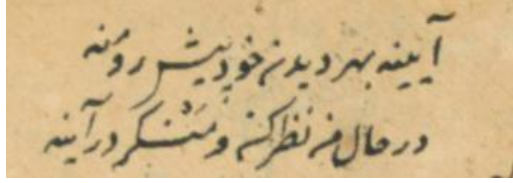 آیینه بهر دیدن خود پیش رو منه
در حال من نظر کن و منگر در آینه